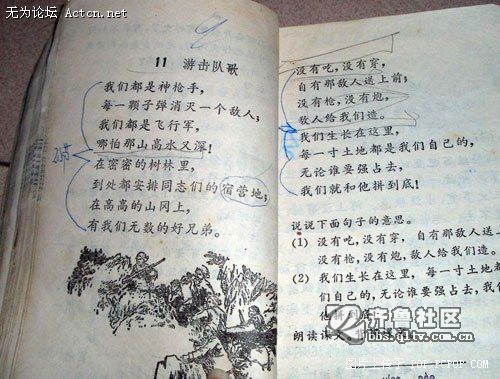 无为论坛
Actcn.net
11 游击队歌
我们都是神枪手，
每一颗子弹消灭一个敌人；
我们都是飞行军，
哪怕那山高水又深！
在密密的树林里，
到处都安排同志们的宿营地；
在高高的山冈上，
有我们无数的好兄弟。
没有吃，没有穿，
自有那敌人送上前；
没有枪，没有炮，
敌人给我们造。
我们生长在这里，
每一寸土地都是我们自己的，
无论谁要强占去，
我们就和他拼到底！
说说下面句子的意思。
(1) 没有吃，没有穿，自有那敌人
没有枪，没有炮，敌人给我们造。
(2) 我们生长在这里，每一寸土地
们自己的，无论谁要强占去，
他拼到
朗读课文
齐鲁社区
bbs.qlwb.com.cn